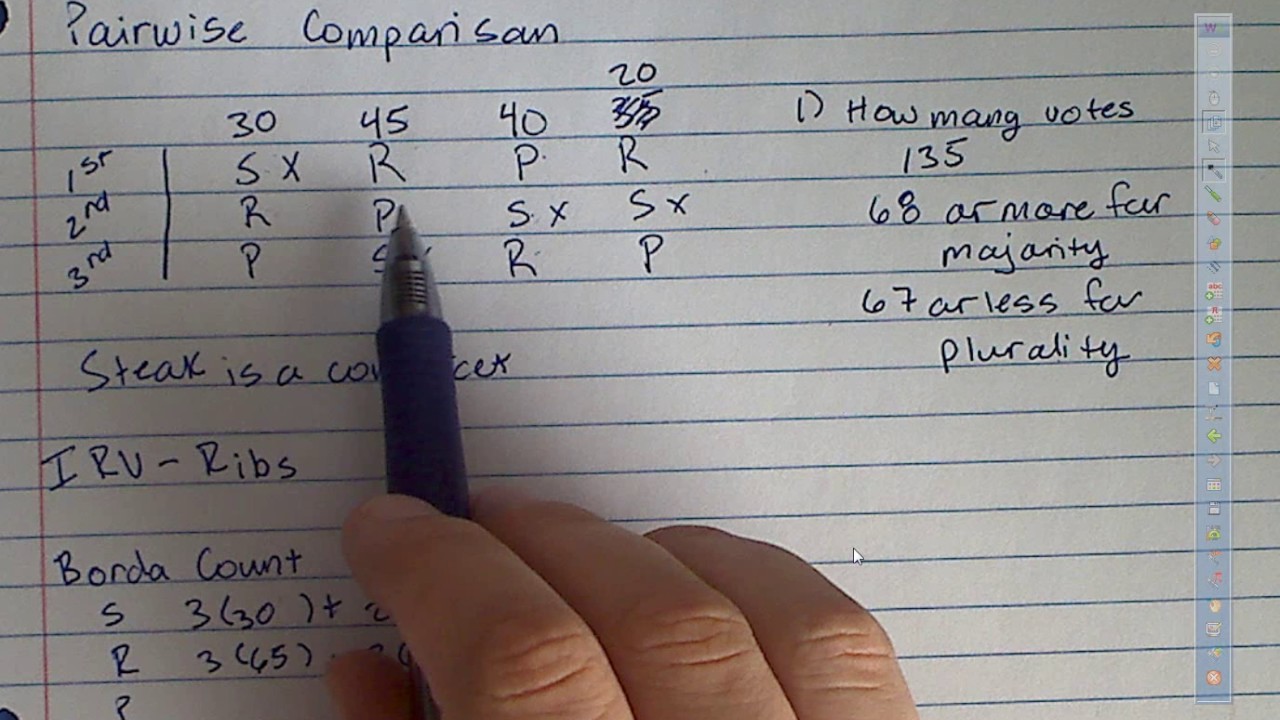 Pairwise Comparison
20
30 45 40
1st S X R P R
2nd R P S X S X
3rd P R P
1) How many votes
135
68 or more for
majority
67 or less for
plurality
Steak is a
IRV - Ribs
Borda Count
S 3(30) + 2
R 3(65)
P